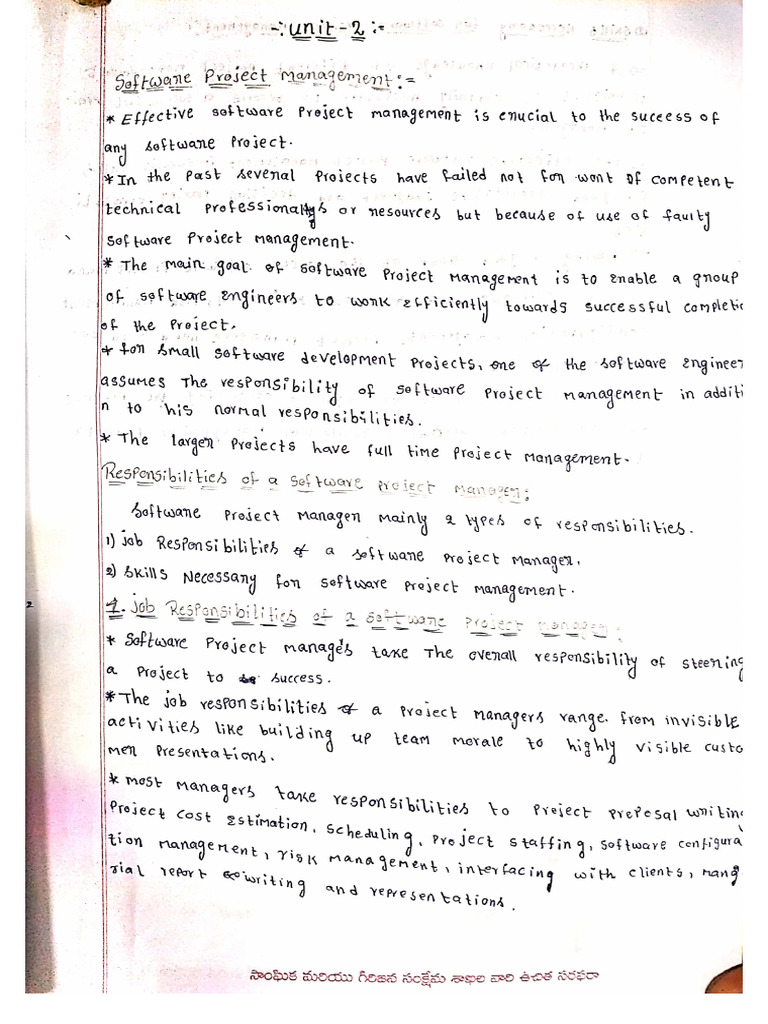 -: unit-2 :-
Software Project Management:=
* Effective software Project management is crucial to the success of
any software Project.
* In the past several Projects have failed not for wont of competent
technical professionals or resources but because of use of faulty
software Project Management.
* The main goal of software Project Management is to enable a group
of software engineers to work efficiently towards successful completio
of the Project.
* for small software development Projects, one of the software engineer
assumes The responsibility of software Project management in additi
n to his normal responsibilities.
* The larger Projects have full time Project Management.
Responsibilities of a software project manager:
software Project Manager mainly 2 types of responsibilities.
1) job Responsibilities of a software Project Manager.
2) skills Necessary for software Project Management.
1. job Responsibilities of a software Project Manager:
* software Project manages take The overall responsibility of steering
a Project to success.
* The job responsibilities of a Project Managers range. from invisible
activities like building up team morale to highly visible custo
mer Presentations.
* most managers take responsibilities to Preject Preposal writing
Project cost Estimation, scheduling, Project staffing, software configura
tion management, risk management, interfacing with clients, mang
rial report writing and representations.
సాంఘిక మరియు గిరిజన సంక్షేమ శాఖల వారి ఉచిత సరఫరా